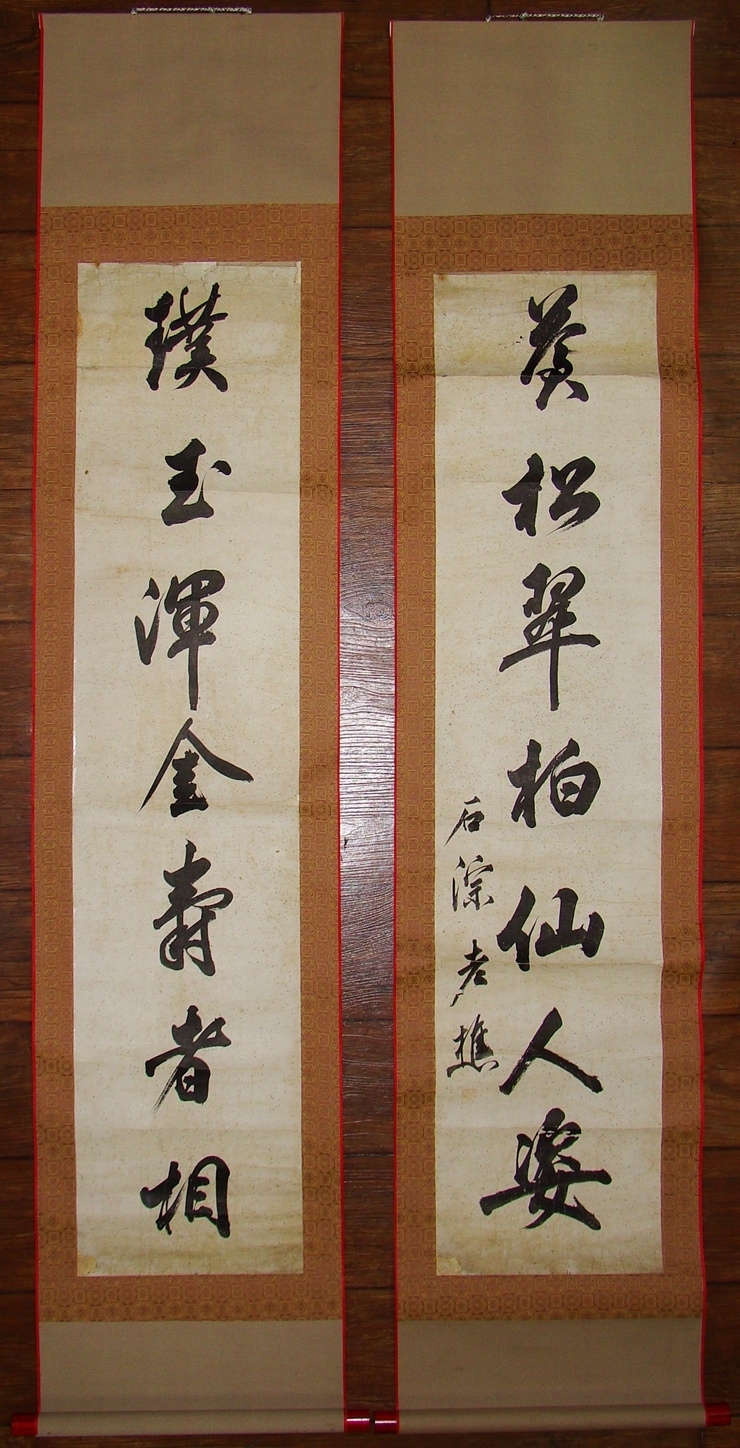 璞玉渾金壽者相
蒼松翠柏仙人姿
石淙老樵